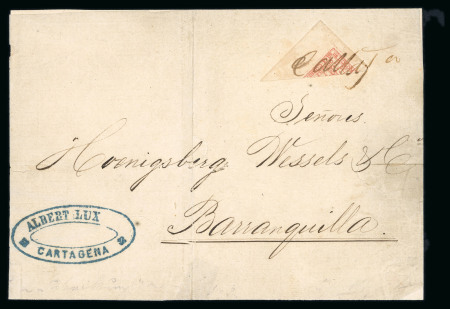 Señores
Hoenigsberg Wessels & Cía
Barranquilla.
ALBERT LUX
CARTAGENA